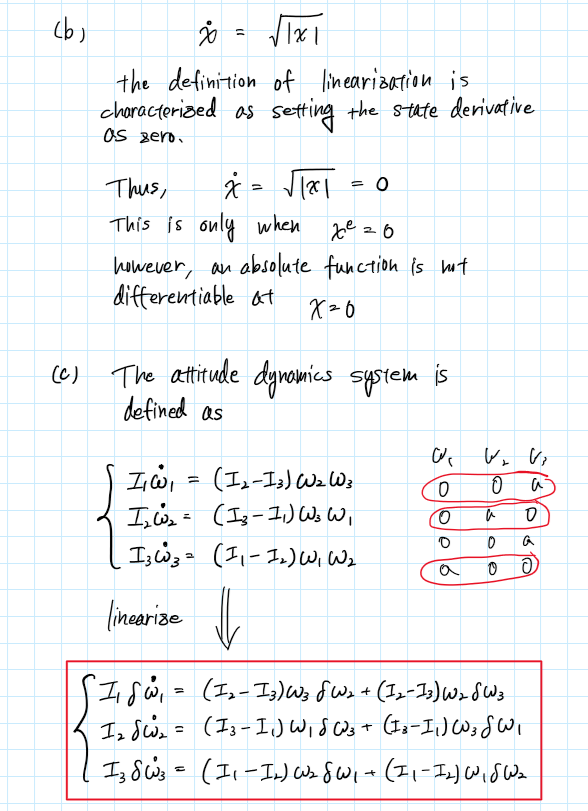 (b) ẋ = √|x|
the definition of linearization is
characterized as setting the state derivative
as zero.
Thus, ẋ = √|x| = 0
This is only when xᵉ = 0
however, an absolute function is not
differentiable at x = 0
(c) The attitude dynamics system is
defined as
I₁ω̇₁ = (I₂-I₃)ω₂ω₃
I₂ω̇₂ = (I₃-I₁)ω₃ω₁
I₃ω̇₃ = (I₁-I₂)ω₁ω₂
ω₁ ω₂ ω₃
0 0 a
0 a 0
0 0 a
a 0 0
linearize
I₁δω̇₁ = (I₂-I₃)ω₃δω₂ + (I₂-I₃)ω₂δω₃
I₂δω̇₂ = (I₃-I₁)ω₁δω₃ + (I₃-I₁)ω₃δω₁
I₃δω̇₃ = (I₁-I₂)ω₂δω₁ + (I₁-I₂)ω₁δω₂